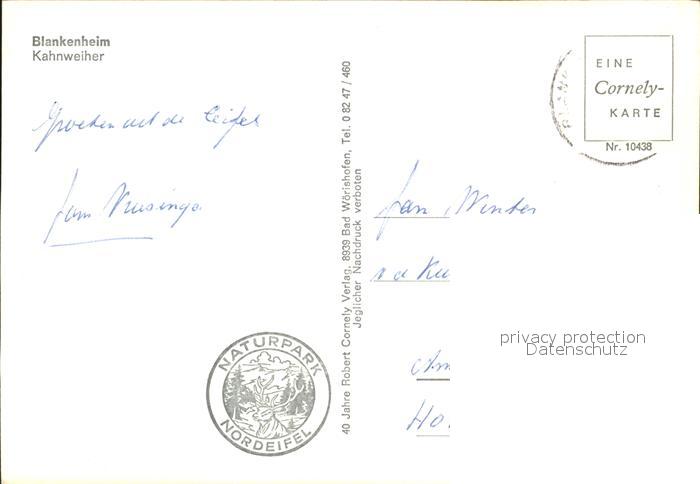 Blankenheim
Kahnweiher
Groeten uit de Eifel
fam
40 Jahre Robert Cornely Verlag, 8939 Bad Wörishofen, Tel. 0 82 47 / 460
Jeglicher Nachdruck verboten
EINE
Cornely-
KARTE
Nr. 10438
fam Winter
v d
Am
Ho
privacy protection
Datenschutz
NATURPARK
NORDEIFEL